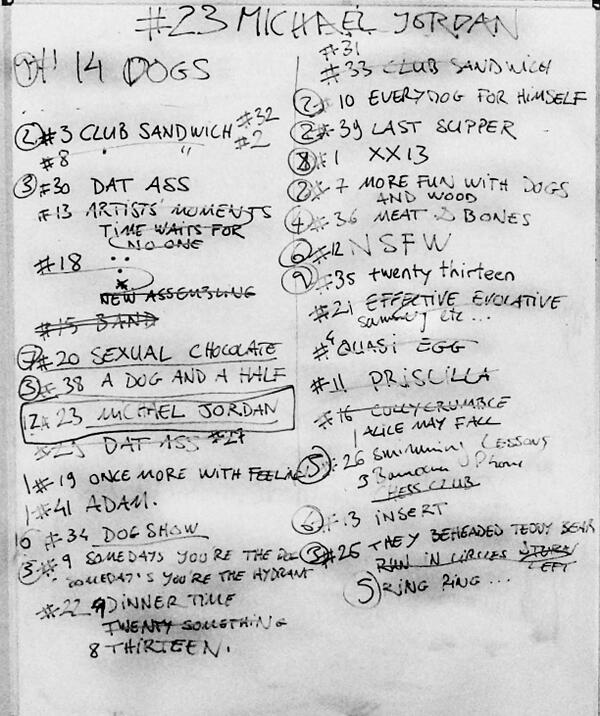 #23 MICHAEL JORDAN
1 #1 14 DOGS
② #3 CLUB SANDWICH #32
#8 " " #2
③ #30 DAT ASS
#13 ARTISTS' MOMENTS
TIME WAITS FOR
NO ONE
#18 :
NEW ASSEMBLING
#15 BAND
⑦ #20 SEXUAL CHOCOLATE
③ #38 A DOG AND A HALF
12 #23 MICHAEL JORDAN
#25 DAT ASS #27
1 #19 ONCE MORE WITH FEELING
1 #41 ADAM.
10 #34 DOG SHOW
③ #9 SOMEDAYS YOU'RE THE
SOMEDAY'S YOU'RE THE HYDRANT
#22 9 DINNER TIME
TWENTY SOMETHING
8 THIRTEEN.
#31
#33 CLUB SANDWICH
② #10 EVERYDOG FOR HIMSELF
② #39 LAST SUPPER
⑧ #1 XX13
② #7 MORE FUN WITH DOGS
AND WOOD
④ #36 MEAT & BONES
⑥ #12 NSFW
⑨ #35 twenty thirteen
#21 EFFECTIVE EVOLATIVE
etc...
#4 QUASI EGG
#11 PRISCILLA
#16 COLLYCRUMBLE
1 ALICE MAY FALL
⑤ #26 Swimming Lessons
3 Banana Phone
CHESS CLUB
⑥ #13 INSERT
③ #26 THEY BEHEADED TEDDY BEAR
RUN IN CIRCLES TURN
LEFT
⑤ RING RING...